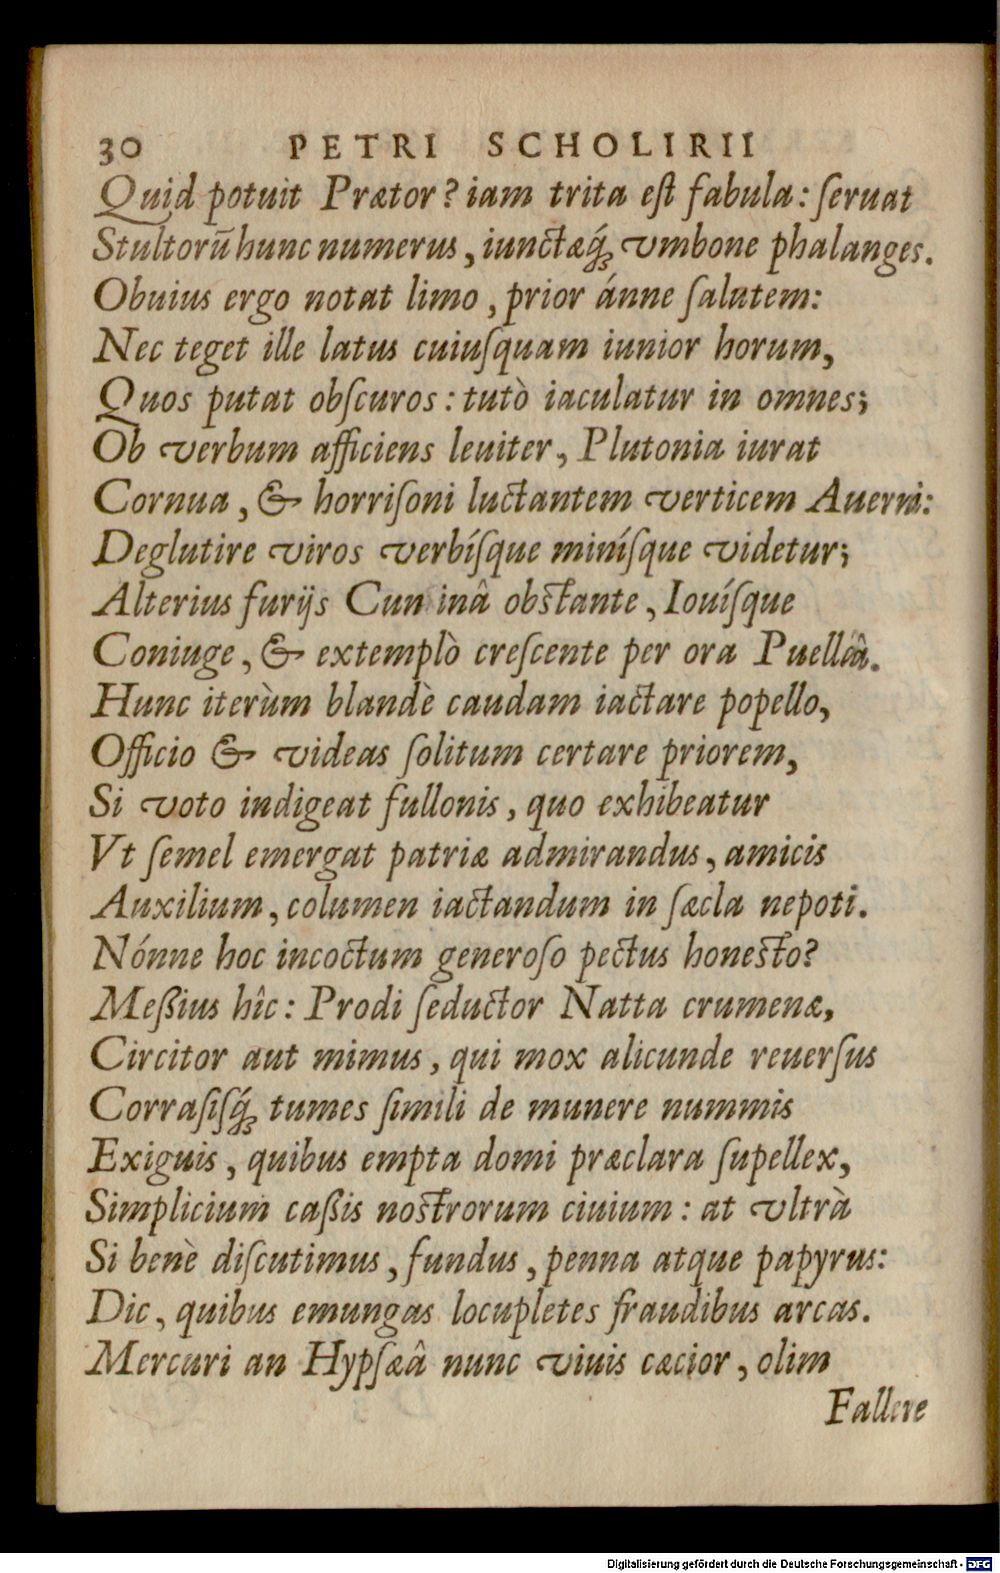 30 PETRI SCHOLIRII
Quid potuit Prætor? iam trita eſt fabula: ſeruat
Stultorū hunc numerus, iunctæq́ꝫ vmbone phalanges.
Obuius ergo notat limo, prior ánne ſalutem:
Nec teget ille latus cuiuſquam iunior horum,
Quos putat obſcuros: tutò iaculatur in omnes;
Ob verbum afficiens leuiter, Plutonia iurat
Cornua, & horriſoni luctantem verticem Auerni:
Deglutire viros verbíſque miníſque videtur;
Alterius furijs Cun inâ obſtante, Iouíſque
Coniuge, & extemplò creſcente per ora Puellâ.
Hunc iterùm blandè caudam iactare popello,
Officio & videas ſolitum certare priorem,
Si voto indigeat fullonis, quo exhibeatur
Vt ſemel emergat patriæ admirandus, amicis
Auxilium, columen iactandum in ſæcla nepoti.
Nónne hoc incoctum generoſo pectus honesto?
Meßius hîc: Prodi ſeductor Natta crumenæ,
Circitor aut mimus, qui mox alicunde reuerſus
Corraſiſq́ꝫ tumes ſimili de munere nummis
Exiguis, quibus empta domi præclara ſupellex,
Simplicium caßis nostrorum ciuium: at vltrà
Si benè diſcutimus, fundus, penna atque papyrus:
Dic, quibus emungas locupletes fraudibus arcas.
Mercuri an Hypſæâ nunc viuis cæcior, olim
Fallere
Digitalisierung gefördert durch die Deutsche Forschungsgemeinschaft - DFG